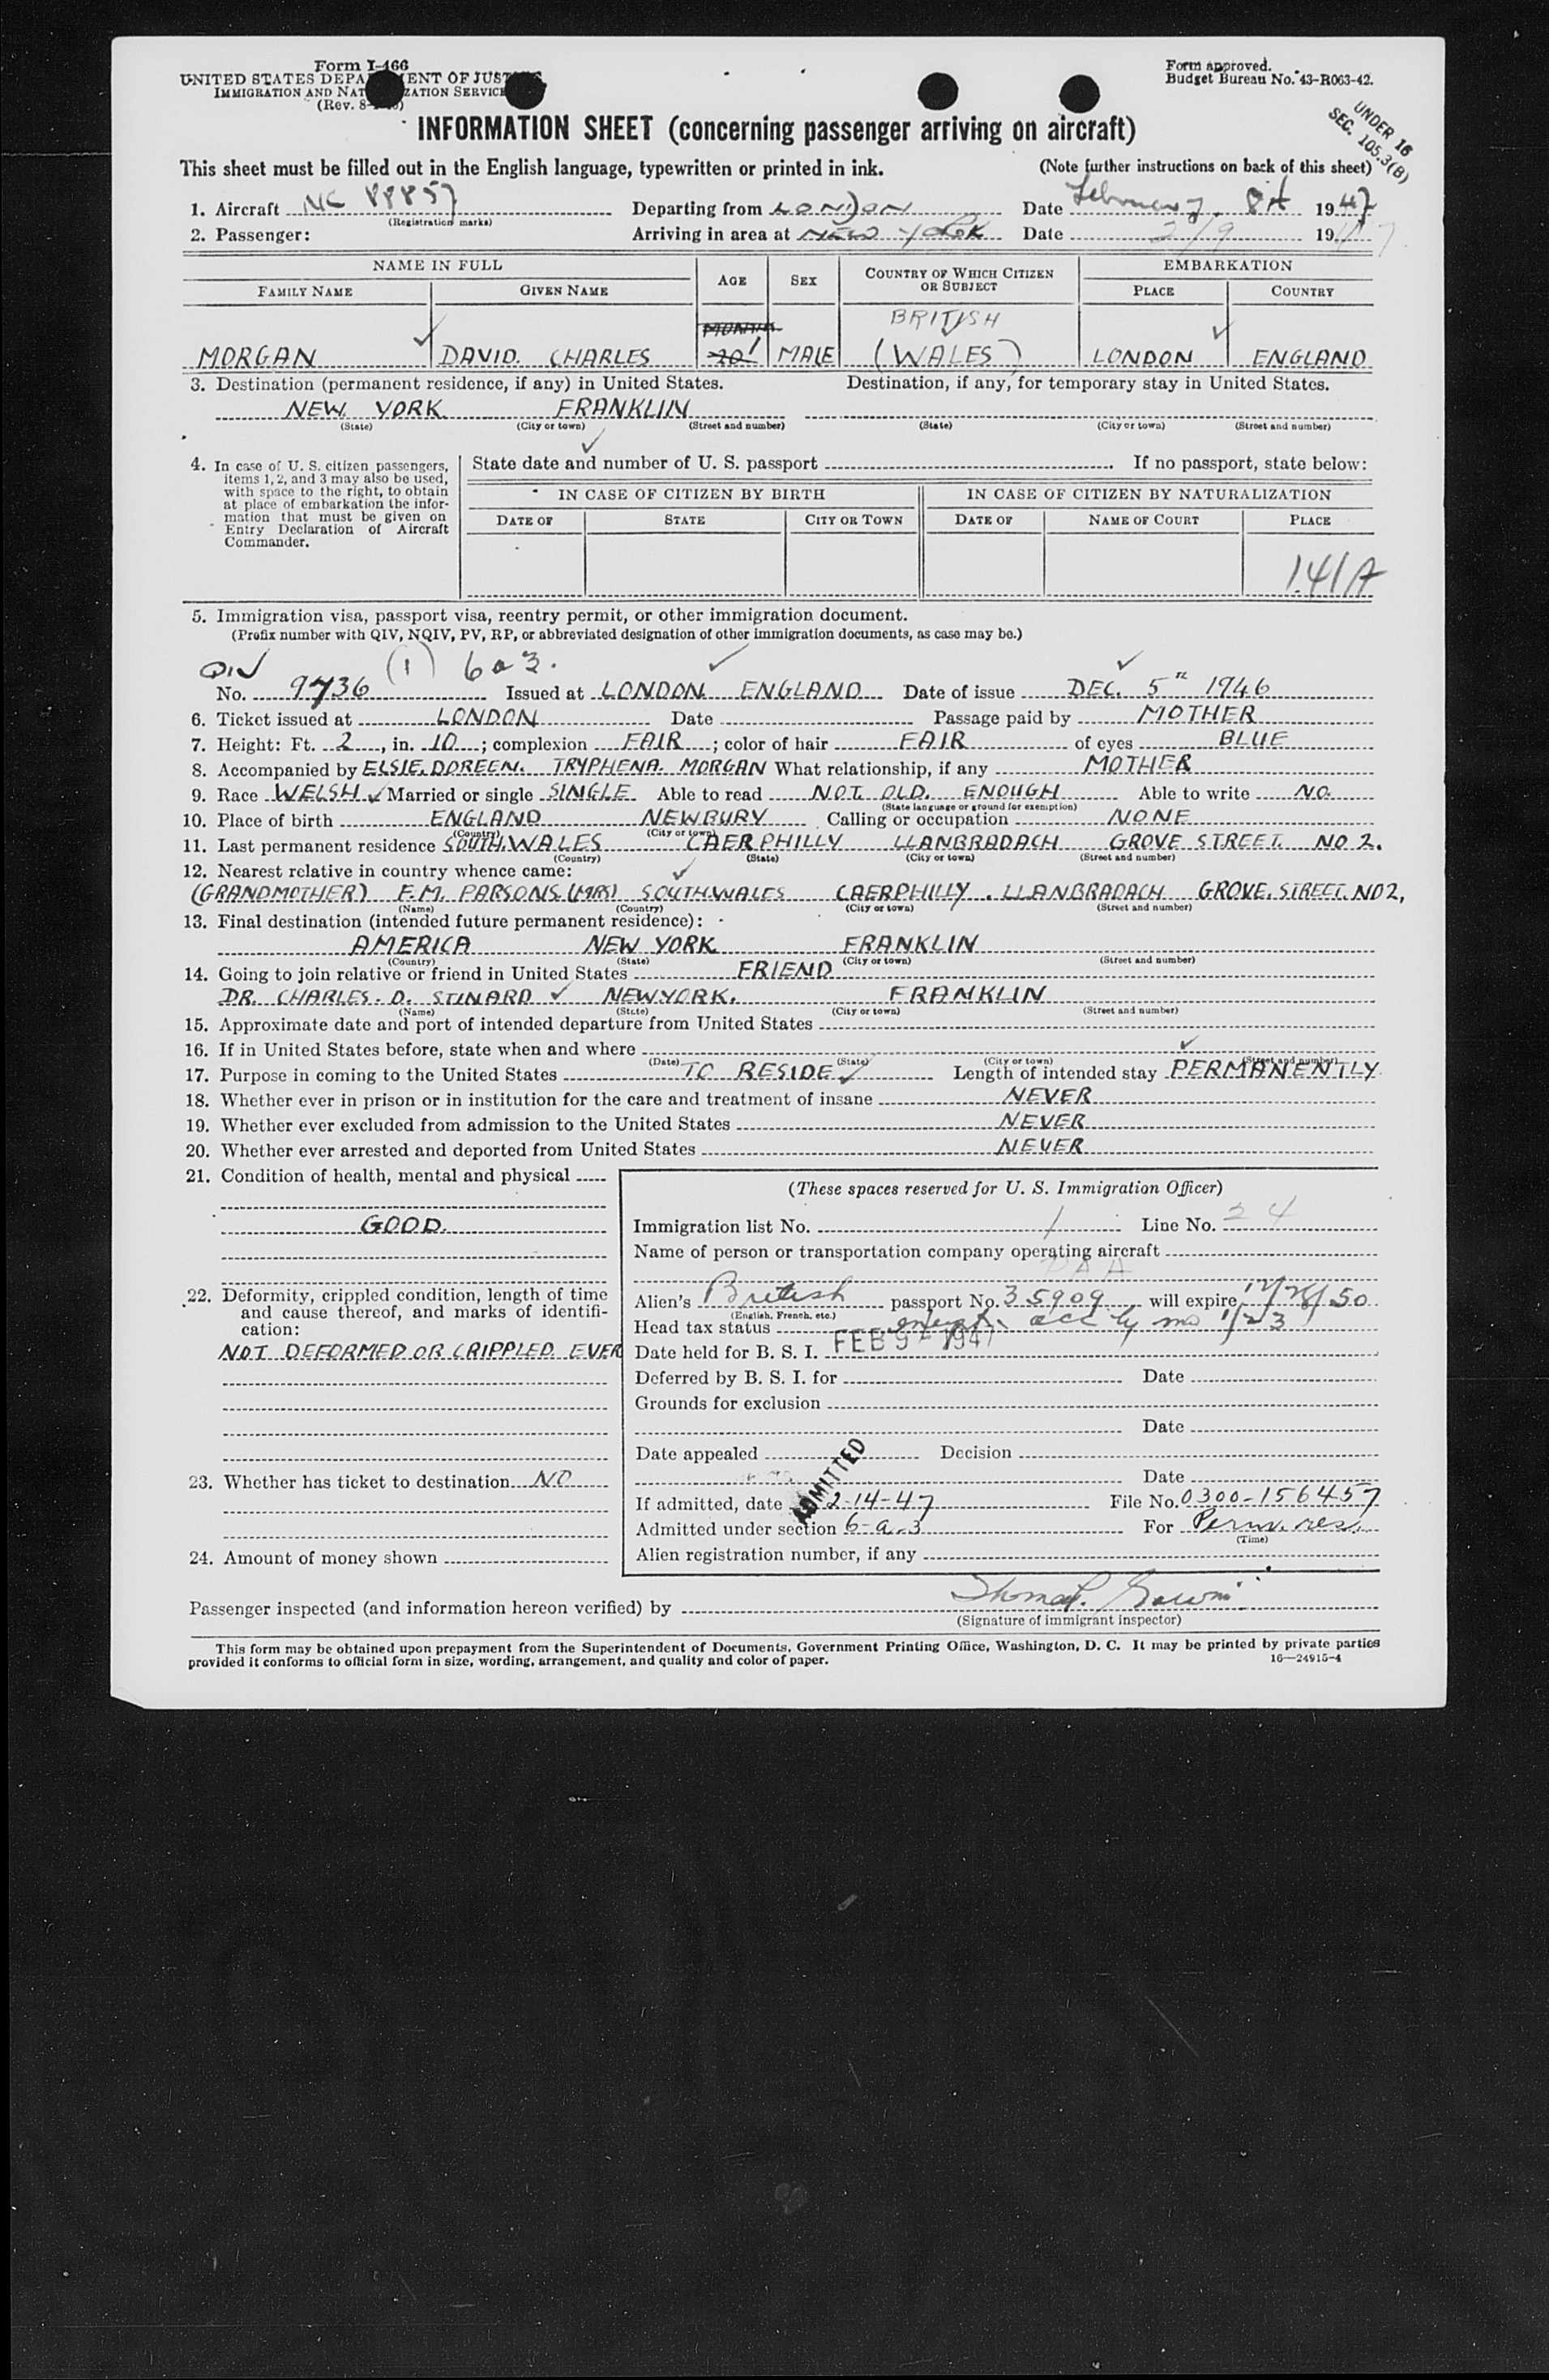 Form I-466
UNITED STATES DEPARTMENT OF JUSTICE
IMMIGRATION AND NATURALIZATION SERVICE
(Rev. 8-
Form approved.
Budget Bureau No. 43-R063-42.
UNDER 16
SEC. 105.3(B)
INFORMATION SHEET (concerning passenger arriving on aircraft)
This sheet must be filled out in the English language, typewritten or printed in ink. (Note further instructions on back of this sheet)
1. Aircraft NC 88857 Departing from LONDON Date February 8th 1947
(Registration marks)
2. Passenger: Arriving in area at NEW YORK Date 2/9 1947
NAME IN FULL AGE SEX COUNTRY OF WHICH CITIZEN OR SUBJECT EMBARKATION
FAMILY NAME GIVEN NAME PLACE COUNTRY
MONTHS BRITISH
MORGAN DAVID. CHARLES 20 1 MALE (WALES) LONDON ENGLAND
3. Destination (permanent residence, if any) in United States. Destination, if any, for temporary stay in United States.
NEW YORK FRANKLIN
(State) (City or town) (Street and number) (State) (City or town) (Street and number)
4. In case of U. S. citizen passengers, items 1, 2, and 3 may also be used, with space to the right, to obtain at place of embarkation the information that must be given on Entry Declaration of Aircraft Commander.
State date and number of U. S. passport . If no passport, state below:
IN CASE OF CITIZEN BY BIRTH IN CASE OF CITIZEN BY NATURALIZATION
DATE OF STATE CITY OR TOWN DATE OF NAME OF COURT PLACE
141A
5. Immigration visa, passport visa, reentry permit, or other immigration document.
(Prefix number with QIV, NQIV, PV, RP, or abbreviated designation of other immigration documents, as case may be.)
QIV (1) 6 a 3.
No. 9736 Issued at LONDON ENGLAND Date of issue DEC. 5th 1946
6. Ticket issued at LONDON Date Passage paid by MOTHER
7. Height: Ft. 2, in. 10; complexion FAIR; color of hair FAIR of eyes BLUE
8. Accompanied by ELSIE. DOREEN. TRYPHENA. MORGAN What relationship, if any MOTHER
9. Race WELSH Married or single SINGLE Able to read NOT OLD. ENOUGH Able to write NO.
(State language or ground for exemption)
10. Place of birth ENGLAND NEWBURY Calling or occupation NONE
(Country) (City or town)
11. Last permanent residence SOUTH WALES CAERPHILLY LLANBRADACH GROVE STREET. NO 2.
(Country) (State) (City or town) (Street and number)
12. Nearest relative in country whence came:
(GRANDMOTHER) E.M. PARSONS (MRS) SOUTH WALES CAERPHILLY. LLANBRADACH GROVE. STREET. NO 2,
(Name) (Country) (City or town) (Street and number)
13. Final destination (intended future permanent residence):
AMERICA NEW YORK FRANKLIN
(Country) (State) (City or town) (Street and number)
14. Going to join relative or friend in United States FRIEND
DR. CHARLES. D. STINARD NEWYORK. FRANKLIN
(Name) (State) (City or town) (Street and number)
15. Approximate date and port of intended departure from United States
16. If in United States before, state when and where
(Date) (State) (City or town) (Street and number)
17. Purpose in coming to the United States TO RESIDE Length of intended stay PERMANENTLY
18. Whether ever in prison or in institution for the care and treatment of insane NEVER
19. Whether ever excluded from admission to the United States NEVER
20. Whether ever arrested and deported from United States NEVER
21. Condition of health, mental and physical
GOOD.
22. Deformity, crippled condition, length of time and cause thereof, and marks of identification:
NOT DEFORMED OR CRIPPLED EVER
23. Whether has ticket to destination NO
24. Amount of money shown
(These spaces reserved for U. S. Immigration Officer)
Immigration list No. 1 Line No. 24
Name of person or transportation company operating aircraft
PAA
Alien's British passport No. 35909 will expire 12/28/50
(English, French, etc.)
Head tax status exempt 1/23
Date held for B. S. I. FEB 9 - 1947
Deferred by B. S. I. for Date
Grounds for exclusion
Date
Date appealed Decision
Date
ADMITTED
If admitted, date 2-14-47 File No. 0300-156457
Admitted under section 6-a-3 For Perm. res.
(Time)
Alien registration number, if any
Passenger inspected (and information hereon verified) by
(Signature of immigrant inspector)
This form may be obtained upon prepayment from the Superintendent of Documents, Government Printing Office, Washington, D. C. It may be printed by private parties
provided it conforms to official form in size, wording, arrangement, and quality and color of paper. 16—24915-4